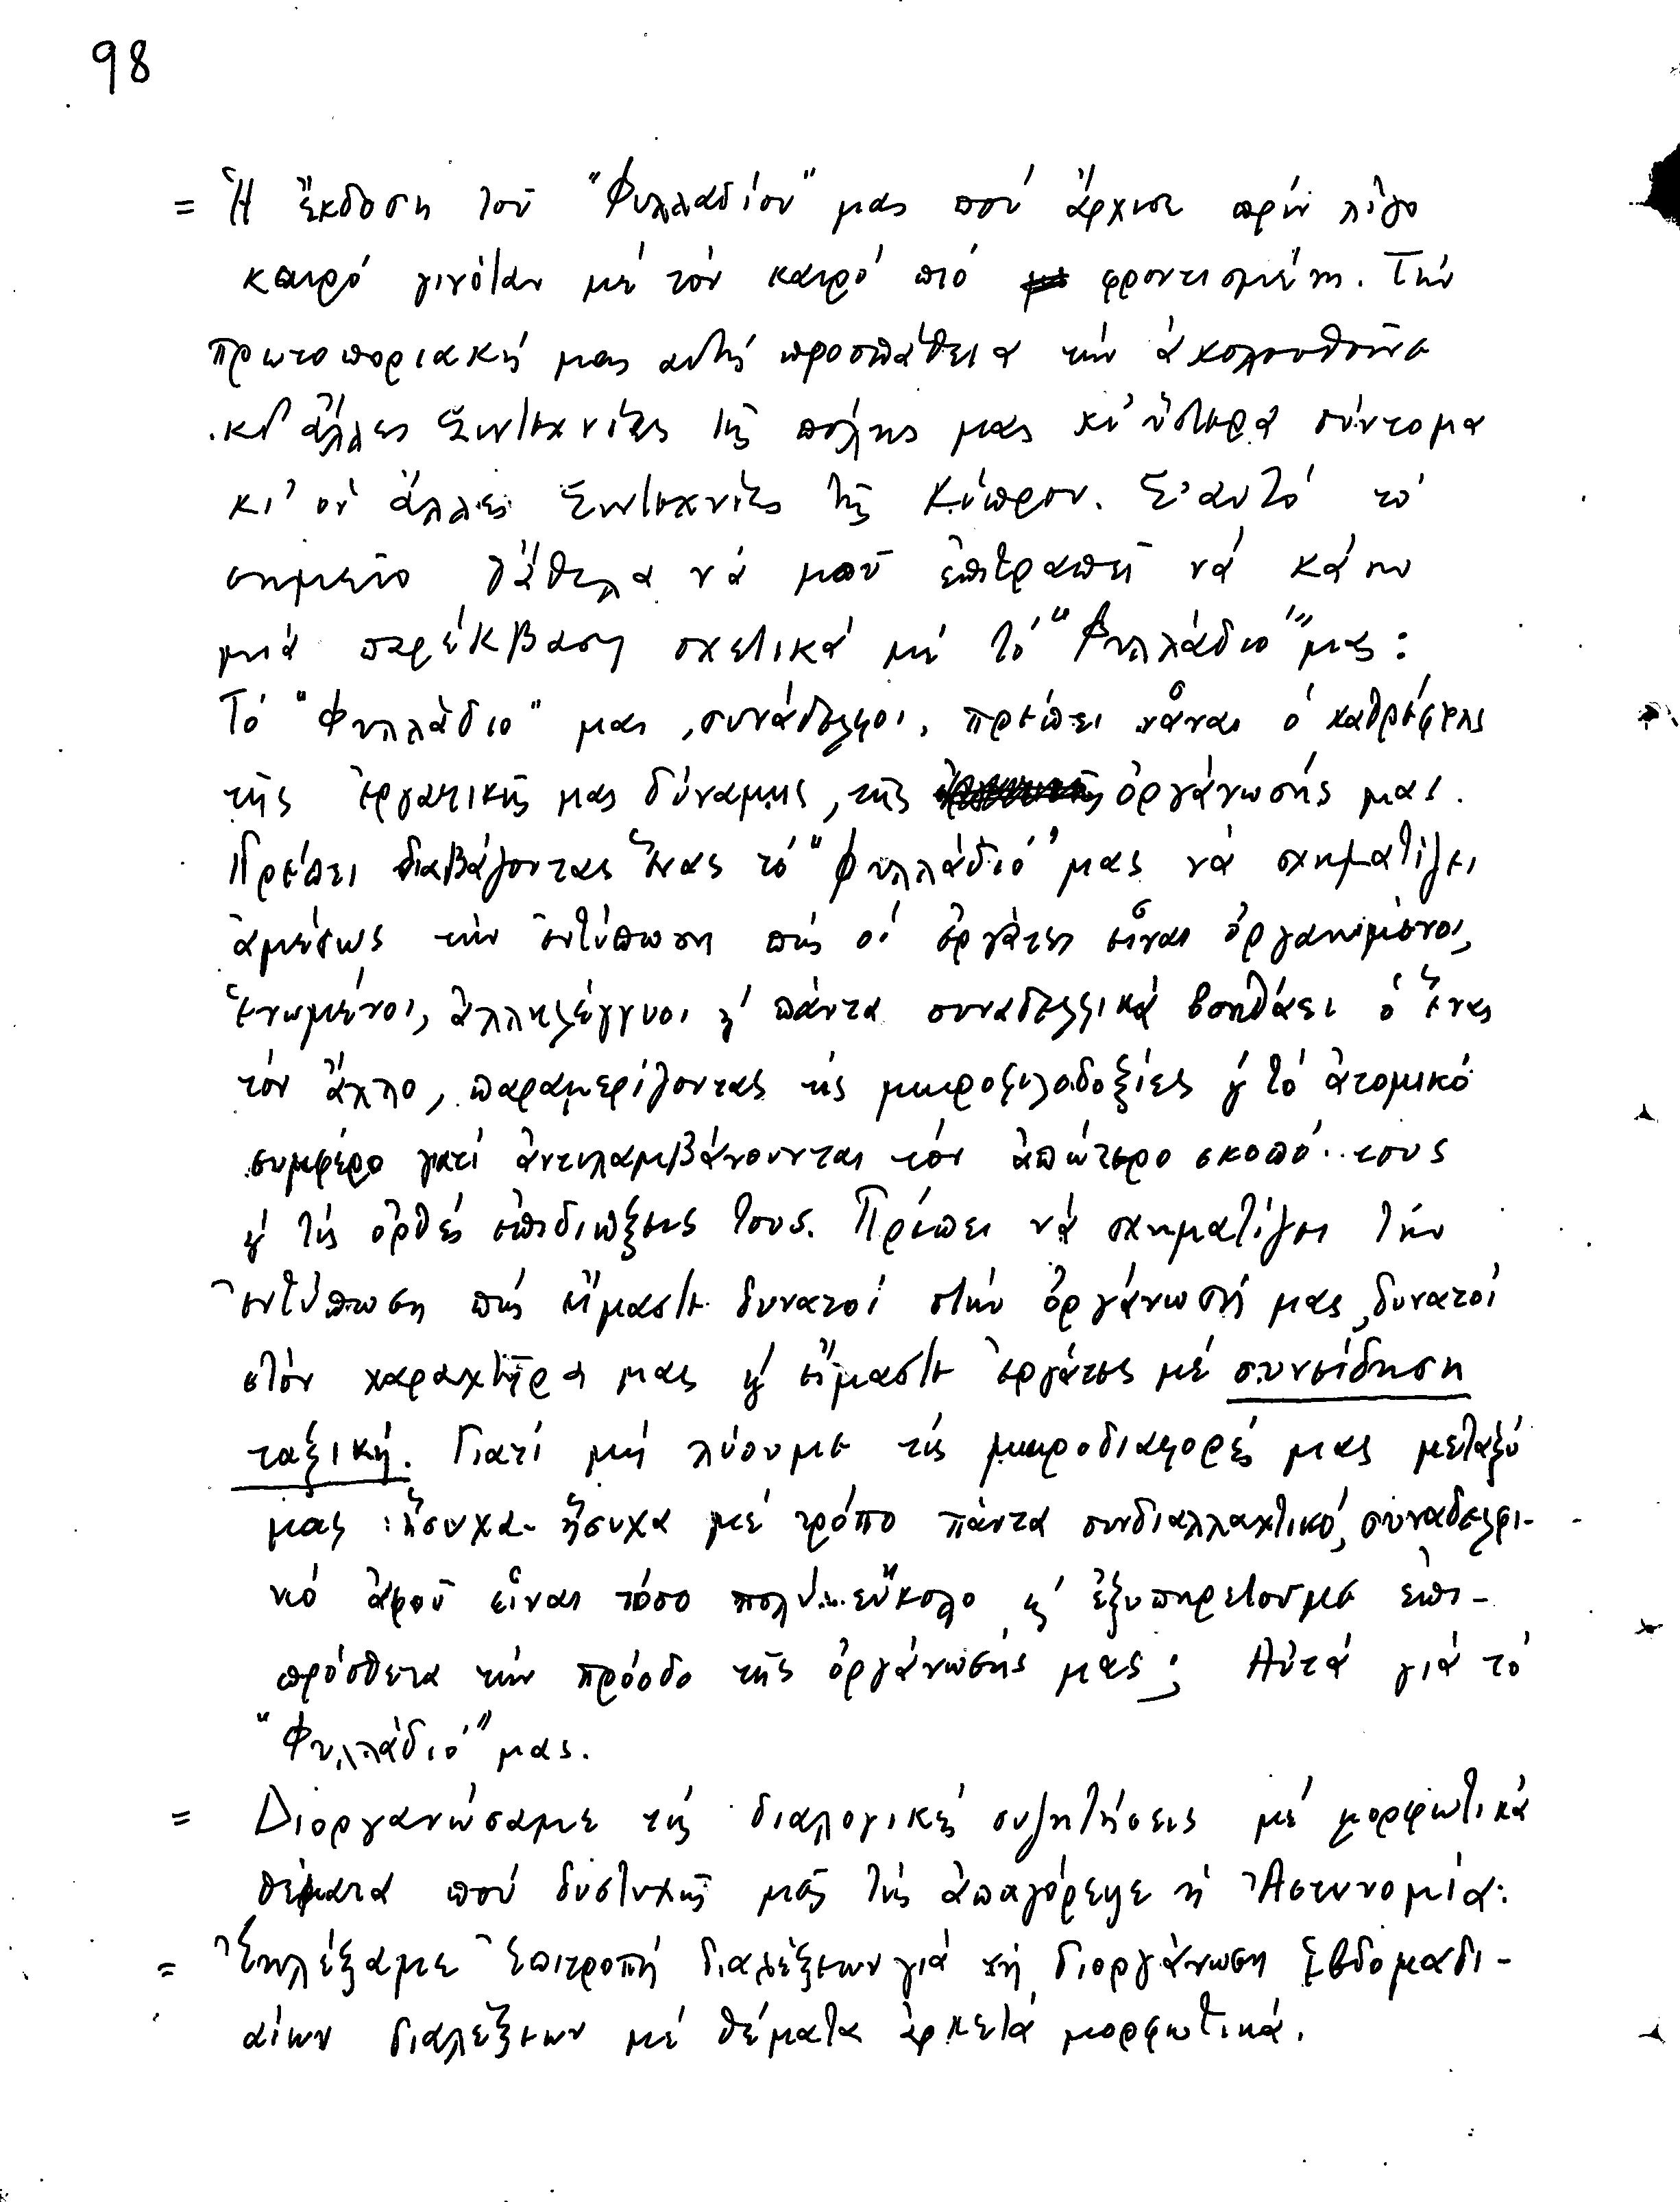 98
= Ἡ ἔκδοση τοῦ "Φυλλαδίου" μας πού ἄρχισε πρίν λίγο
καιρό γινόταν μέ τόν καιρό πιό φροντισμένη. Τήν
πρωτοποριακή μας αὐτή προσπάθεια τήν ἀκολουθοῦνε
κι' ἄλλες Συντεχνίες τῆς πόλης μας κι' ὕστερα σύντομα
κι' οἱ ἄλλες Συντεχνίες τῆς Κύπρου. Σ' αὐτό τό
σημεῖο θἄθελα νά μοῦ ἐπιτραπεῖ νά κάνω
μιά παρέκβαση σχετικά μέ τό "Φυλλάδιο" μας:
Τό "Φυλλάδιο" μας, συνάδελφοι, πρέπει νἆναι ὁ καθρέφτης
τῆς ἐργατικῆς μας δύναμης, τῆς ὀργάνωσής μας.
Πρέπει διαβάζοντας ἕνας τό "Φυλλάδιό" μας νά σχηματίζει
ἀμέσως τήν ἐντύπωση πώς οἱ ἐργάτες εἶναι ὀργανωμένοι,
ἑνωμένοι, ἀλληλέγγυοι κ' πάντα συναδελφικά βοηθάει ὁ ἕνας
τόν ἄλλο, παραμερίζοντας τίς μικροφιλοδοξίες κ' τό ἀτομικό
συμφέρο γιατί ἀντιλαμβάνουνται τόν ἀπώτερο σκοπό τους
κ' τίς ὀρθές ἐπιδιώξεις τους. Πρέπει νά σχηματίζει τήν
ἐντύπωση πώς εἴμαστε δυνατοί στήν ὀργάνωσή μας, δυνατοί
στόν χαραχτῆρα μας κ' εἴμαστε ἐργάτες μέ συνείδηση
ταξική. Γιατί μή λύουμε τίς μικροδιαφορές μας μεταξύ
μας ἥσυχα-ἥσυχα μέ τρόπο πάντα συνδιαλλαχτικό, συναδελφι-
κό ἀφοῦ εἶναι τόσο πολύ εὔκολο κ' ἐξυπηρετοῦμε ἐπι-
πρόσθετα τήν πρόοδο τῆς ὀργάνωσής μας; Αὐτά γιά τό
"Φυλλάδιό" μας.
= Διοργανώσαμε τίς διαλογικές συζητήσεις μέ μορφωτικά
θέματα πού δυστυχῶς μᾶς τίς ἀπαγόρεψε ἡ Ἀστυνομία.
= Ἐκλέξαμε Ἐπιτροπή διαλέξεων γιά τή διοργάνωση ἑβδομαδι-
αίων διαλέξεων μέ θέματα ἀρκετά μορφωτικά.